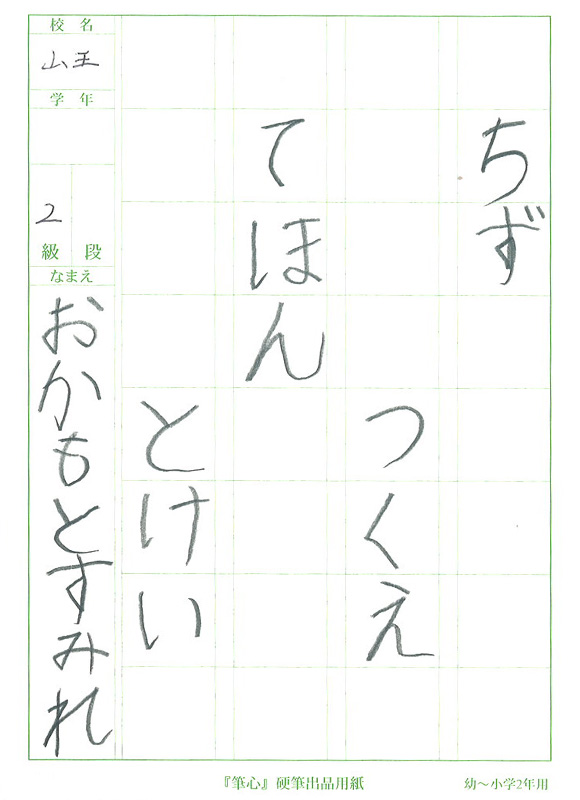 ちず
つくえ
てほん
とけい
校名
山王
学年
2
級 段
なまえ
おかもとすみれ
『筆心』硬筆出品用紙
幼〜小学2年用